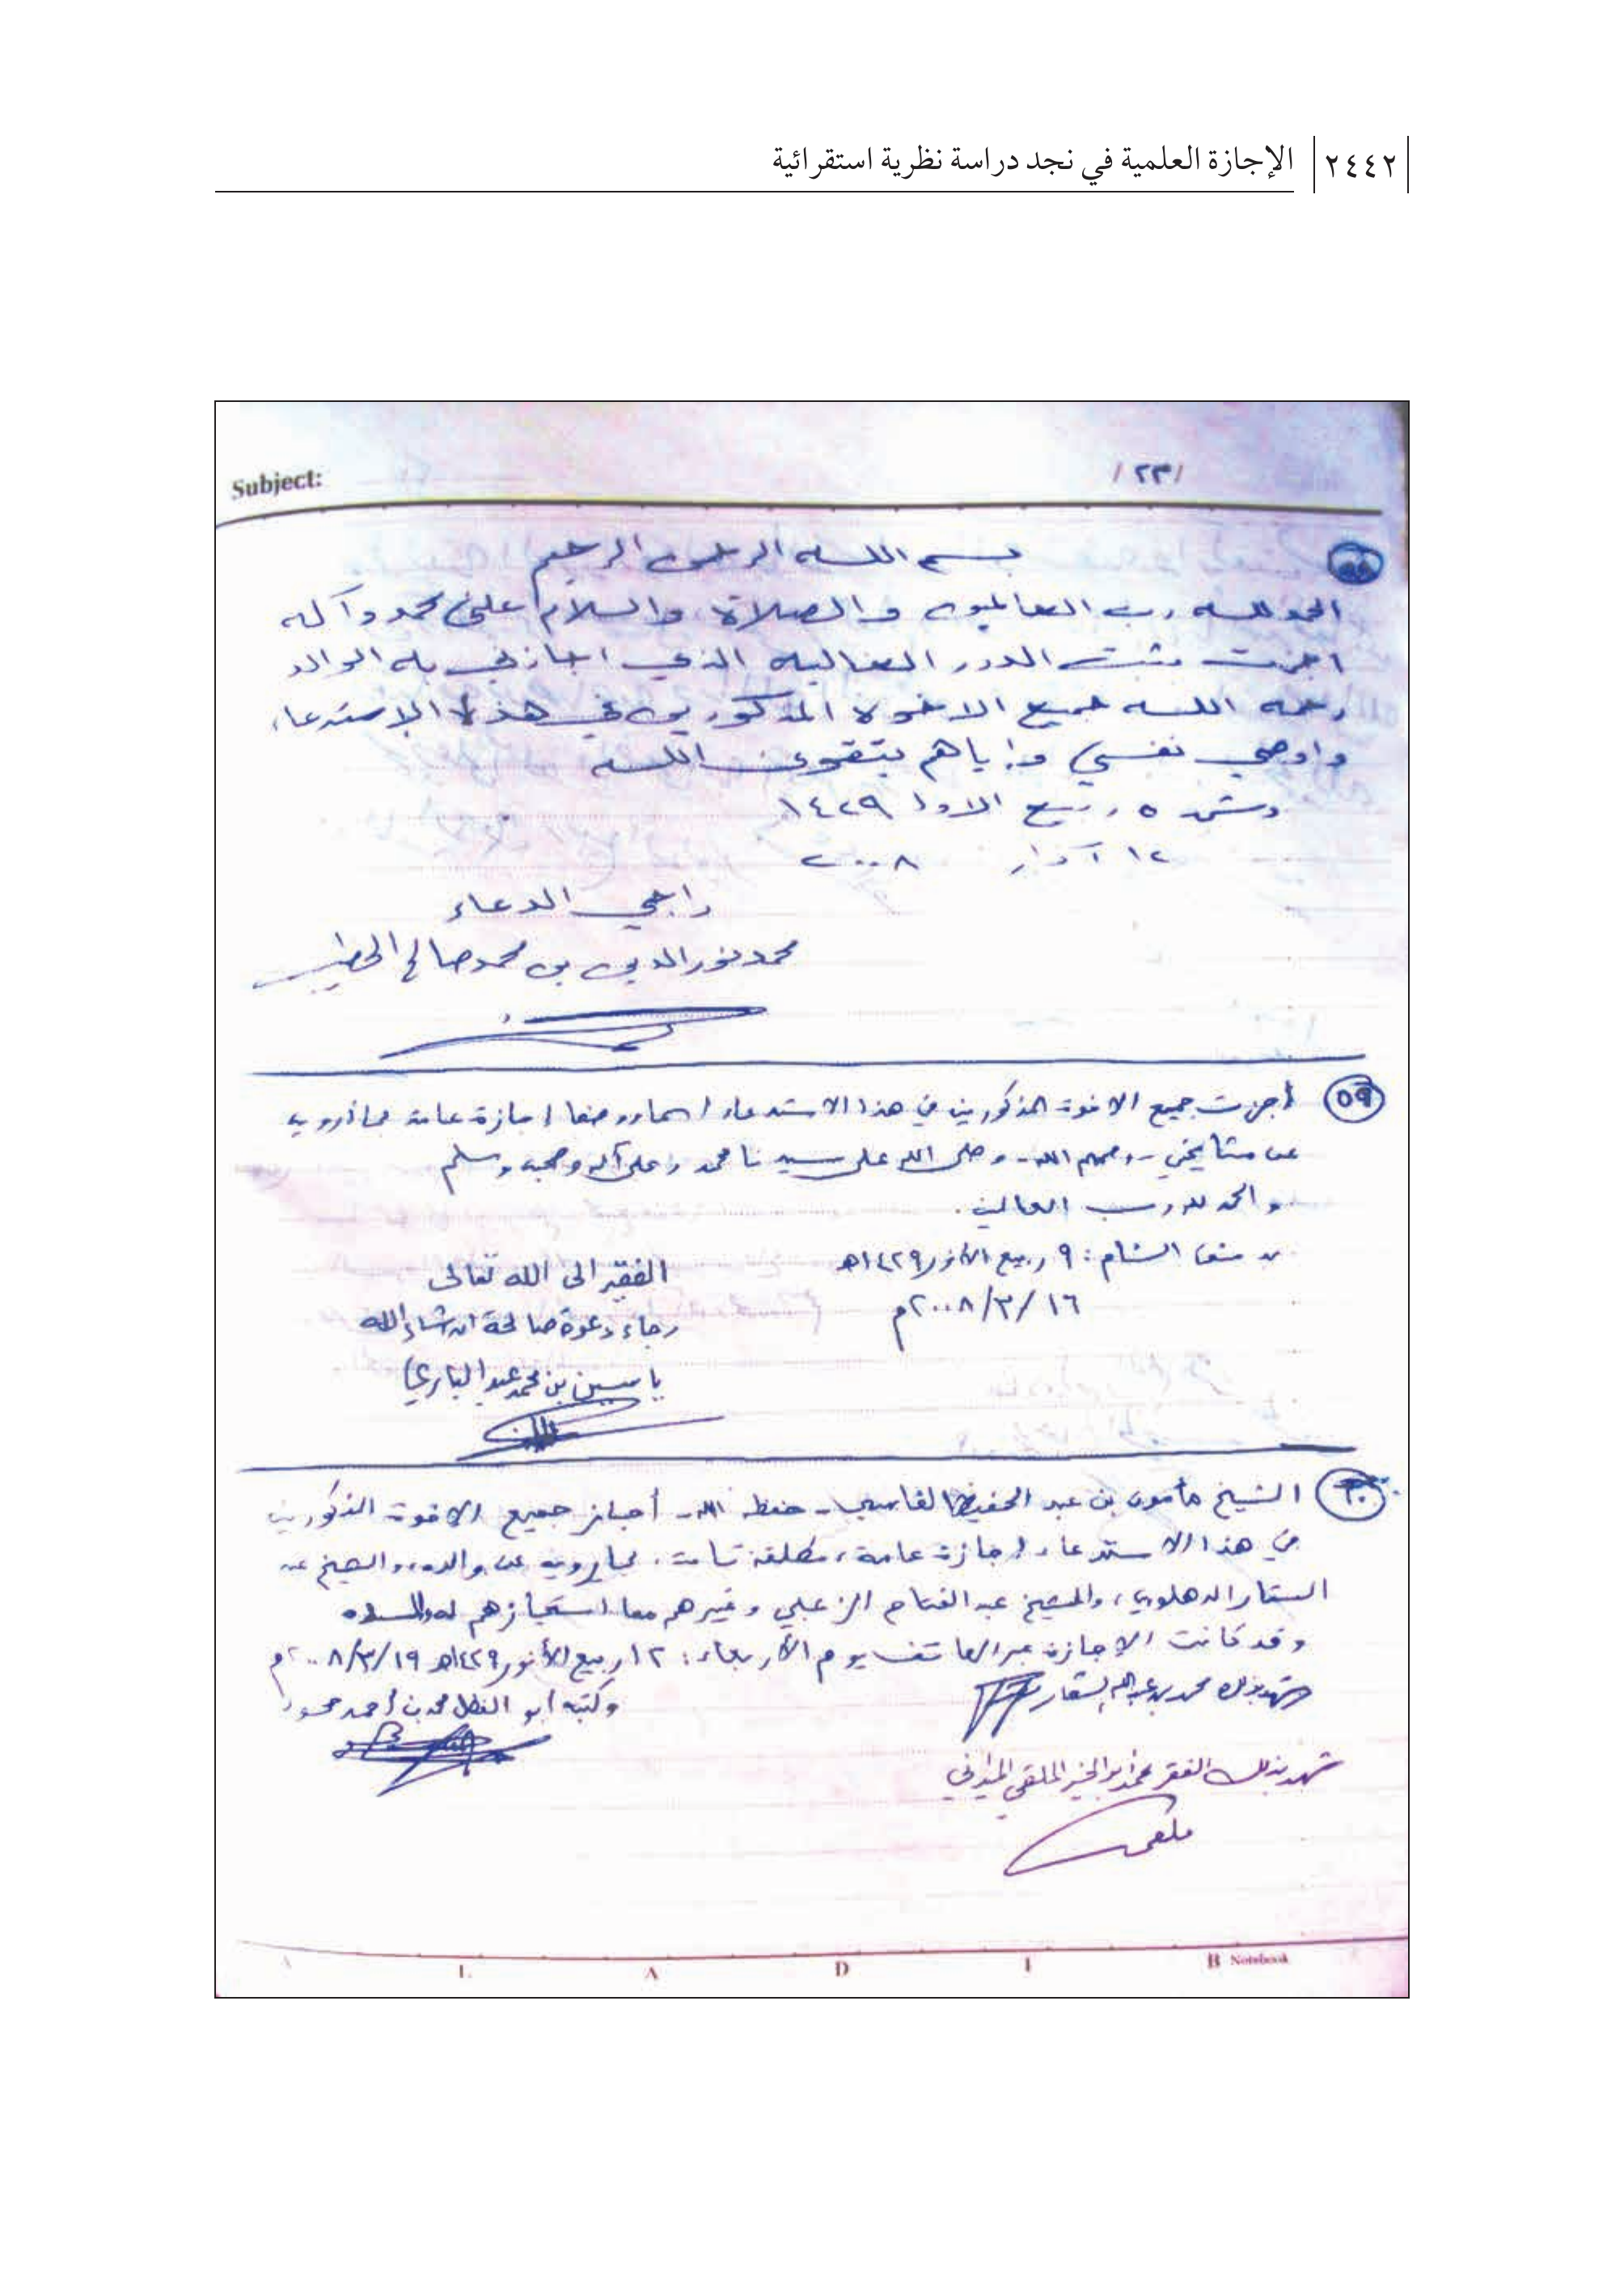 ٢٤٤٢ الإجازة العلمية في نجد دراسة نظرية استقرائية
Subject:
/ ٢٣ /
بسم اللـه الرحمن الرحيم
الحمد للـه رب العالمين والصلاة والسلام على محمد وآله
اجزت بثبت الدرر الغاليه الذي اجازني به الوالد
رحمه اللـه جميع الاخوه المذكورين في هذا الإستدعاء
واوصي نفسي واياهم بتقوى اللـه
دمشق ٥ ربيع الاول ١٤٢٩
١٢ آذار ٢٠٠٨
راجي الدعاء
محمد نور الدين بن محمد صالح الخطيب
٥٩ أجزت جميع الاخوة المذكورين في هذا الاستدعاء إجازة عامة
عن مشايخي - رحمهم الله - وصلى الله على سيدنا محمد وعلى آله وصحبه وسلم
والحمد لله رب العالمين.
الشام: ٩ ربيع الأنور ١٤٢٩هـ
١٦ /٣/ ٢٠٠٨م
الفقير الى الله تعالى
رجاء دعوة صالحة ان شاء الله
ياسين بن محمد عبد الباري
٦٠ الشيخ مأمون بن عبد الحفيظ الفاسي - حفظه الله - أجاز جميع الاخوة المذكورين
في هذا الاستدعاء، إجازة عامة، مطلقة تامة، بما يرويه عن والده، والشيخ عبد
الستار الدهلوي، والشيخ عبد الفتاح الزعبي وغيرهم مما استجازهم له والده
وقد كانت الإجازة عبر الهاتف يوم الأربعاء: ١٢ ربيع الأنور ١٤٢٩هـ ١٩ /٣/ ٢٠٠٨م
شهد بذلك محمد بن عبد الله الشعار
وكتبه أبو الفضل محمد بن أحمد محمود
شهد بذلك الفقير محمد أبو الخير الملقي الميداني
ملقي
L A D I B Notebook